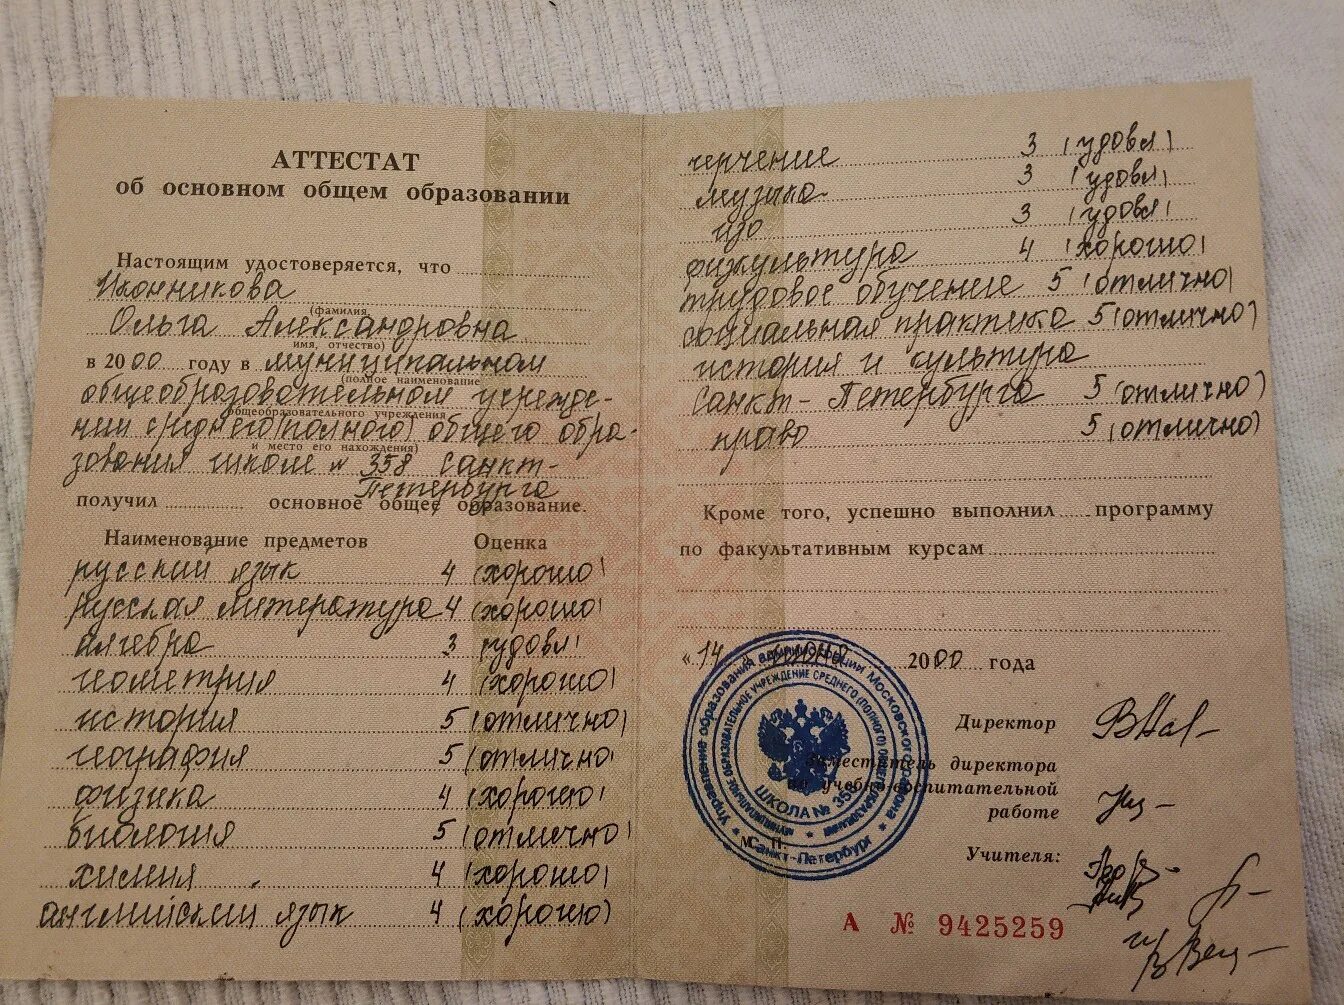 АТТЕСТАТ
об основном общем образовании
Настоящим удостоверяется, что
Иконникова
(фамилия,
Ольга Александровна
имя, отчество)
в 2000 году в муниципальном
(полное наименование
общеобразовательном учрежде-
общеобразовательного учреждения
нии среднего (полного) общего обра-
и место его нахождения)
зования школе № 358 Санкт-
Петербурга
получил основное общее образование.
Наименование предметов Оценка
русский язык 4 (хорошо)
русская литература 4 (хорошо)
алгебра 3 (удовл)
геометрия 4 (хорошо)
история 5 (отлично)
география 5 (отлично)
физика 4 (хорошо)
биология 5 (отлично)
химия 4 (хорошо)
английский язык 4 (хорошо)
черчение 3 (удовл)
музыка 3 (удовл)
изо 3 (удовл)
физкультура 4 (хорошо)
трудовое обучение 5 (отлично)
социальная практика 5 (отлично)
история и культура
Санкт-Петербурга 5 (отлично)
право 5 (отлично)
Кроме того, успешно выполнил программу
по факультативным курсам
« 14 » июня 2000 года
Директор
Заместитель директора
по учебно-воспитательной
работе
Учителя:
М. П.
Управление образования администрации Московского района
Санкт-Петербург
ШКОЛА № 358
А № 9425259